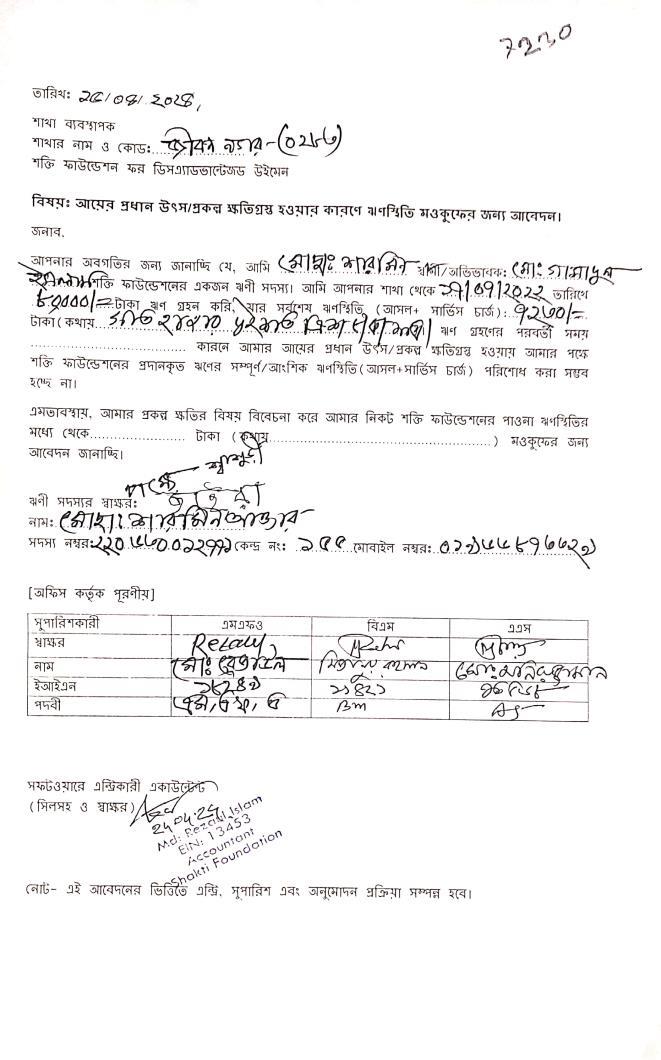 7230
তারিখ: ২৫/০৪/২০২৪,
শাখা ব্যবস্থাপক
শাখার নাম ও কোড: নগর-(০২৮৬)
শক্তি ফাউন্ডেশন ফর ডিসএ্যাডভান্টেজড উইমেন
বিষয়: আয়ের প্রধান উৎস/প্রকল্প ক্ষতিগ্রস্থ হওয়ার কারণে ঋণস্থিতি মওকুফের জন্য আবেদন।
জনাব,
আপনার অবগতির জন্য জানাচ্ছি যে, আমি মোছাঃ শারমিন স্বামী/অভিভাবক: মো:
শক্তি ফাউন্ডেশনের একজন ঋণী সদস্য। আমি আপনার শাখা থেকে /০৭/২০২২ তারিখে
৮০০০০/= টাকা ঋণ গ্রহন করি, যার সর্বশেষ ঋণস্থিতি (আসল+ সার্ভিস চার্জ): ৭২৩০/=
টাকা (কথায় সাত হাজার দুইশত ত্রিশ টাকা মাত্র) ঋণ গ্রহণের পরবর্তী সময়
.............................. কারনে আমার আয়ের প্রধান উৎস/প্রকল্প ক্ষতিগ্রস্থ হওয়ায় আমার পক্ষে
শক্তি ফাউন্ডেশনের প্রদানকৃত ঋণের সম্পূর্ণ/আংশিক ঋণস্থিতি (আসল+সার্ভিস চার্জ) পরিশোধ করা সম্ভব
হচ্ছে না।
এমতাবস্থায়, আমার প্রকল্প ক্ষতির বিষয় বিবেচনা করে আমার নিকট শক্তি ফাউন্ডেশনের পাওনা ঋণস্থিতির
মধ্যে থেকে.................. টাকা (কথায়..........................................) মওকুফের জন্য
আবেদন জানাচ্ছি।
পক্ষে - শাশুড়ী
ঋণী সদস্যর স্বাক্ষর:
নাম: মোছাঃ শারমিন আক্তার
সদস্য নম্বর: কেন্দ্র নং: ১৫৫ মোবাইল নম্বর:
[অফিস কর্তৃক পূরণীয়]
সুপারিশকারী এমএফও বিএম এএস
স্বাক্ষর Rezaul
নাম মোঃ রেজাউল রহমান মোঃ মনিরুজ্জামান
ইআইএন
পদবী এম, এফ, ও Bm AS
সফটওয়ারে এন্ট্রিকারী একাউন্টেন্ট
(সিলসহ ও স্বাক্ষর)
24.04.24
Md: Rezaul Islam
EIN: 13453
Accountant
Shakti Foundation
নোট- এই আবেদনের ভিত্তিতে এন্ট্রি, সুপারিশ এবং অনুমোদন প্রক্রিয়া সম্পন্ন হবে।